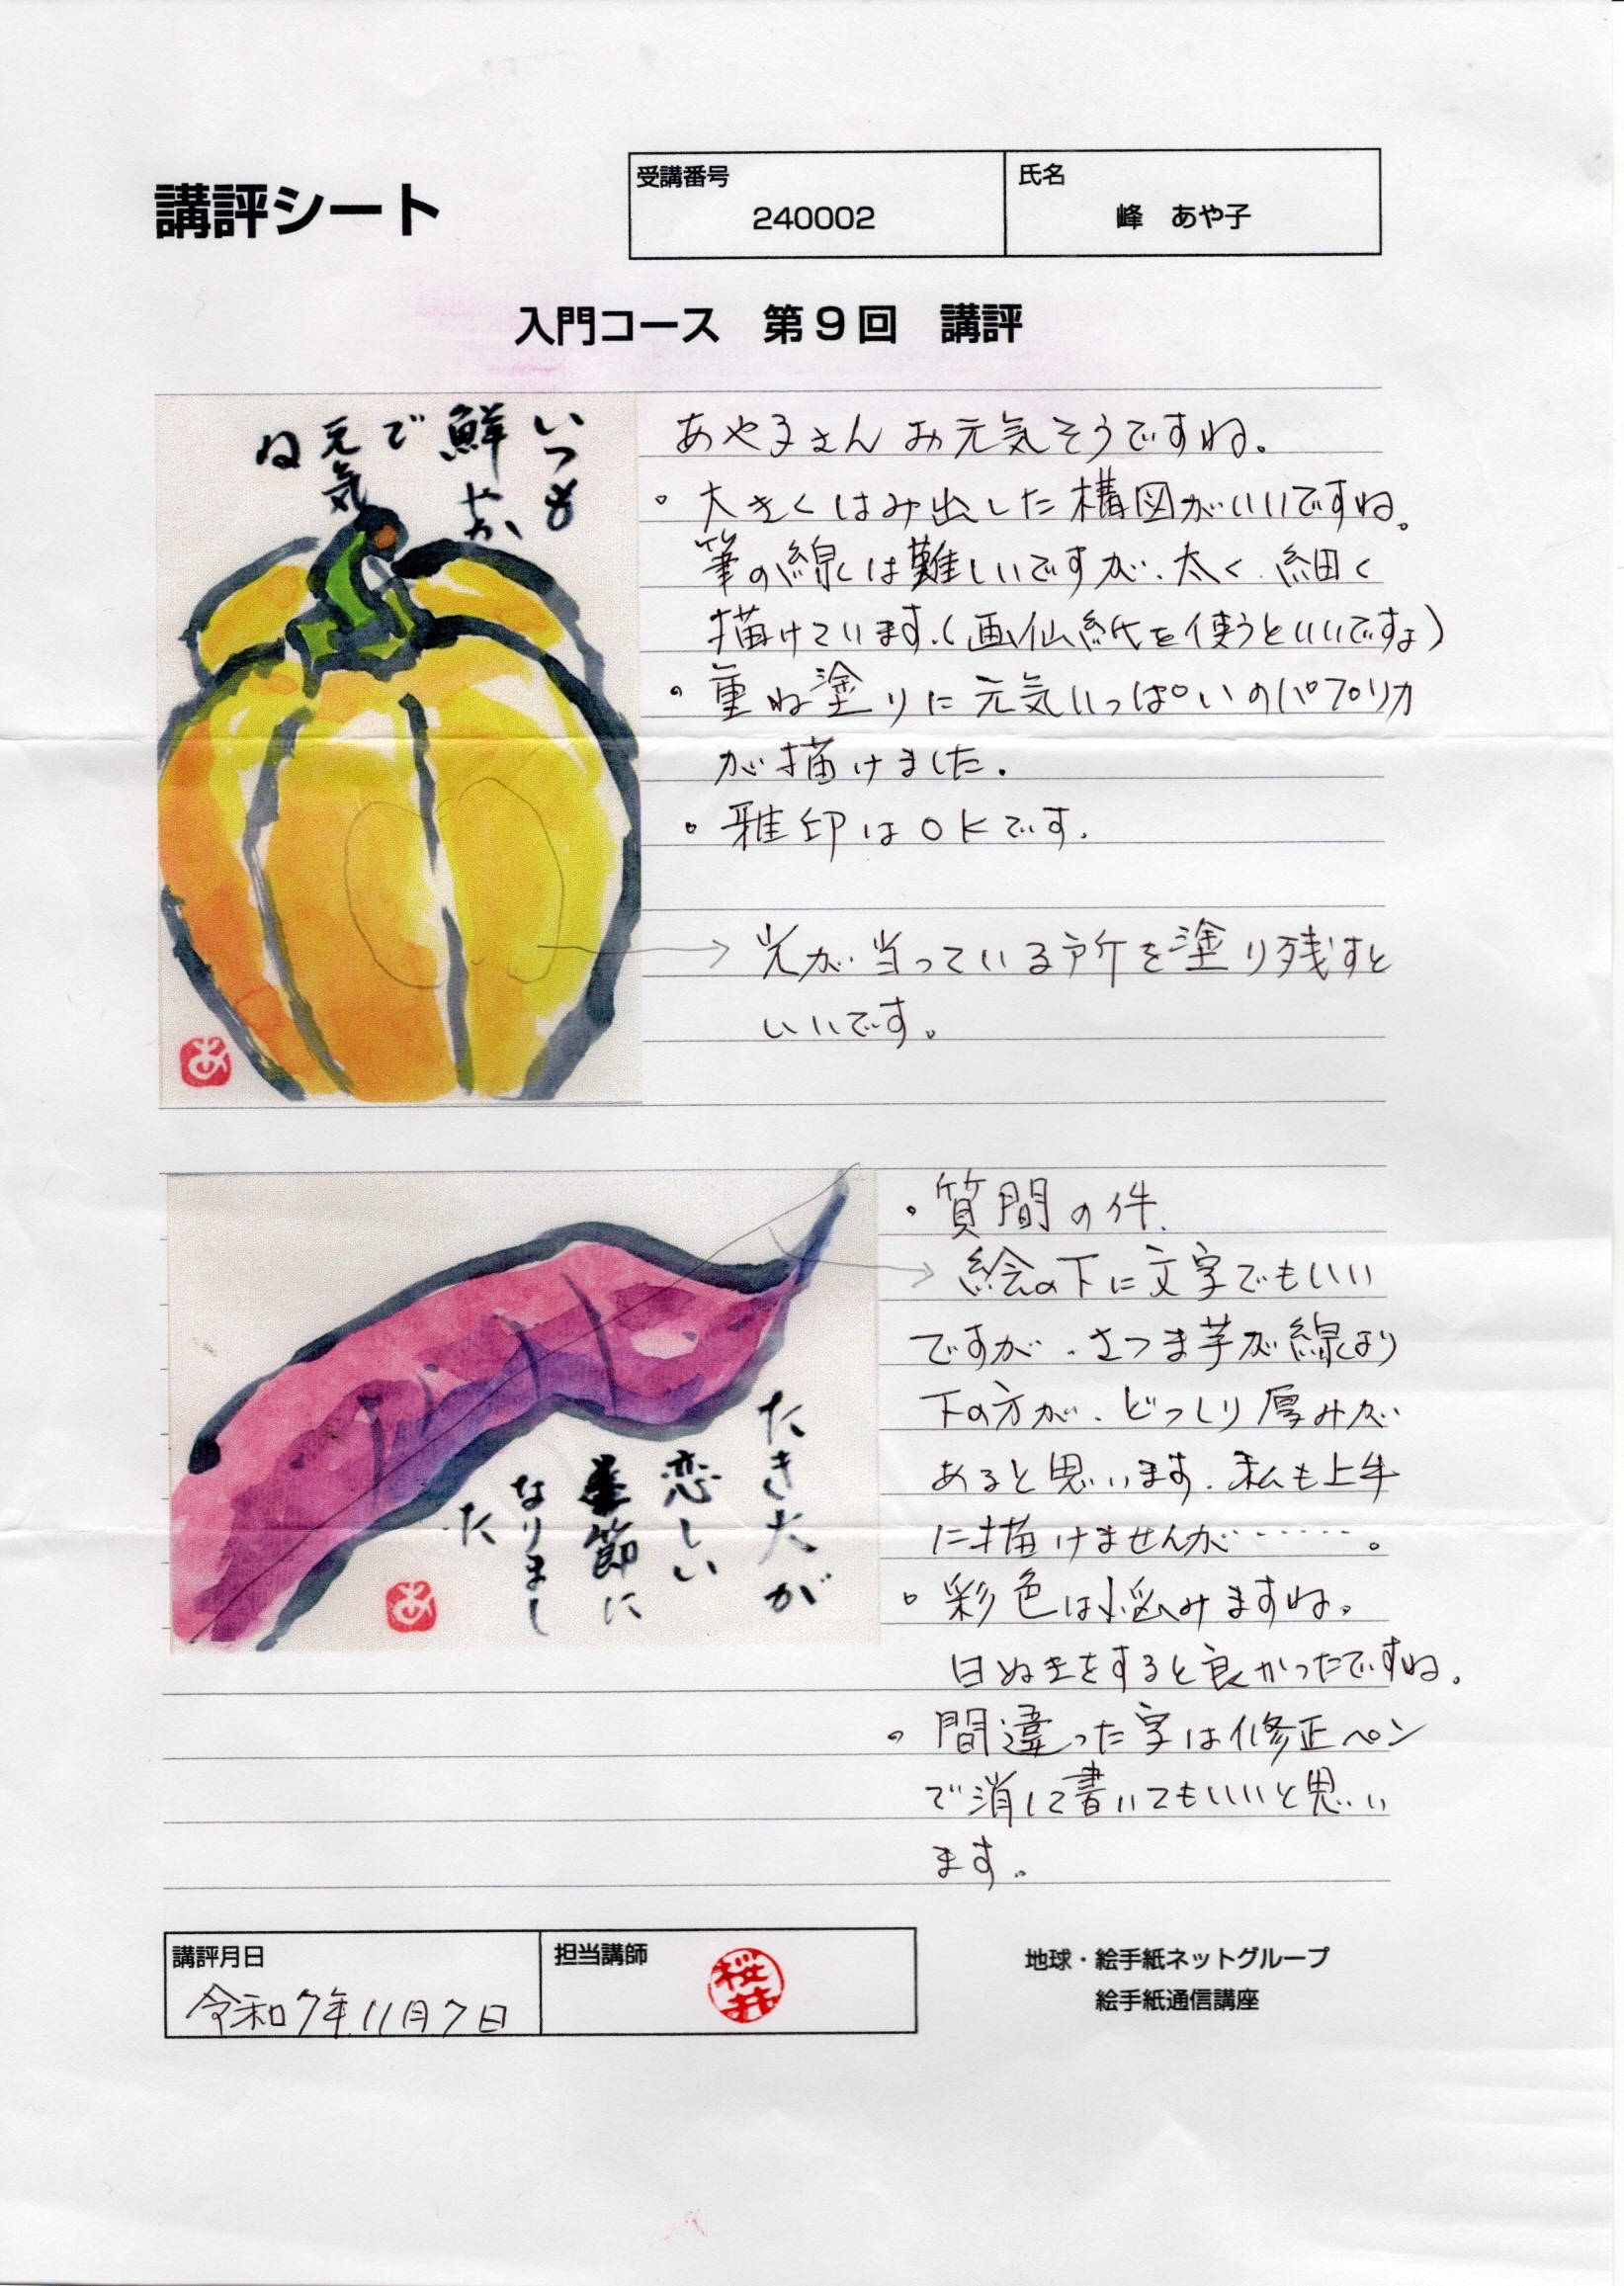 講評シート
受講番号
240002
氏名
峰 あや子
入門コース 第9回 講評
いつも
鮮やか
で
元気
ね
あ
あや子さん お元気そうですね。
・大きくはみ出した構図がいいですね。
筆の線は難しいですが、太く、細く
描けています。(画仙紙を使うといいですよ)
・重ね塗りに元気いっぱいのパプリカ
が描けました。
・雅印はOKです。
光が当っている所を塗り残すと
いいです。
たき火が
恋しい
季節に
なりまし
た
あ
・質問の件.
絵の下に文字でもいい
ですが、さつま芋が線より
下の方が、どっしり厚みが
あると思います。私も上手
に描けませんが……。
・彩色は悩みますね。
白ぬきをすると良かったですね。
・間違った字は修正ペン
で消して書いてもいいと思い
ます。
講評月日
令和7年11月7日
担当講師
桜井
地球・絵手紙ネットグループ
絵手紙通信講座